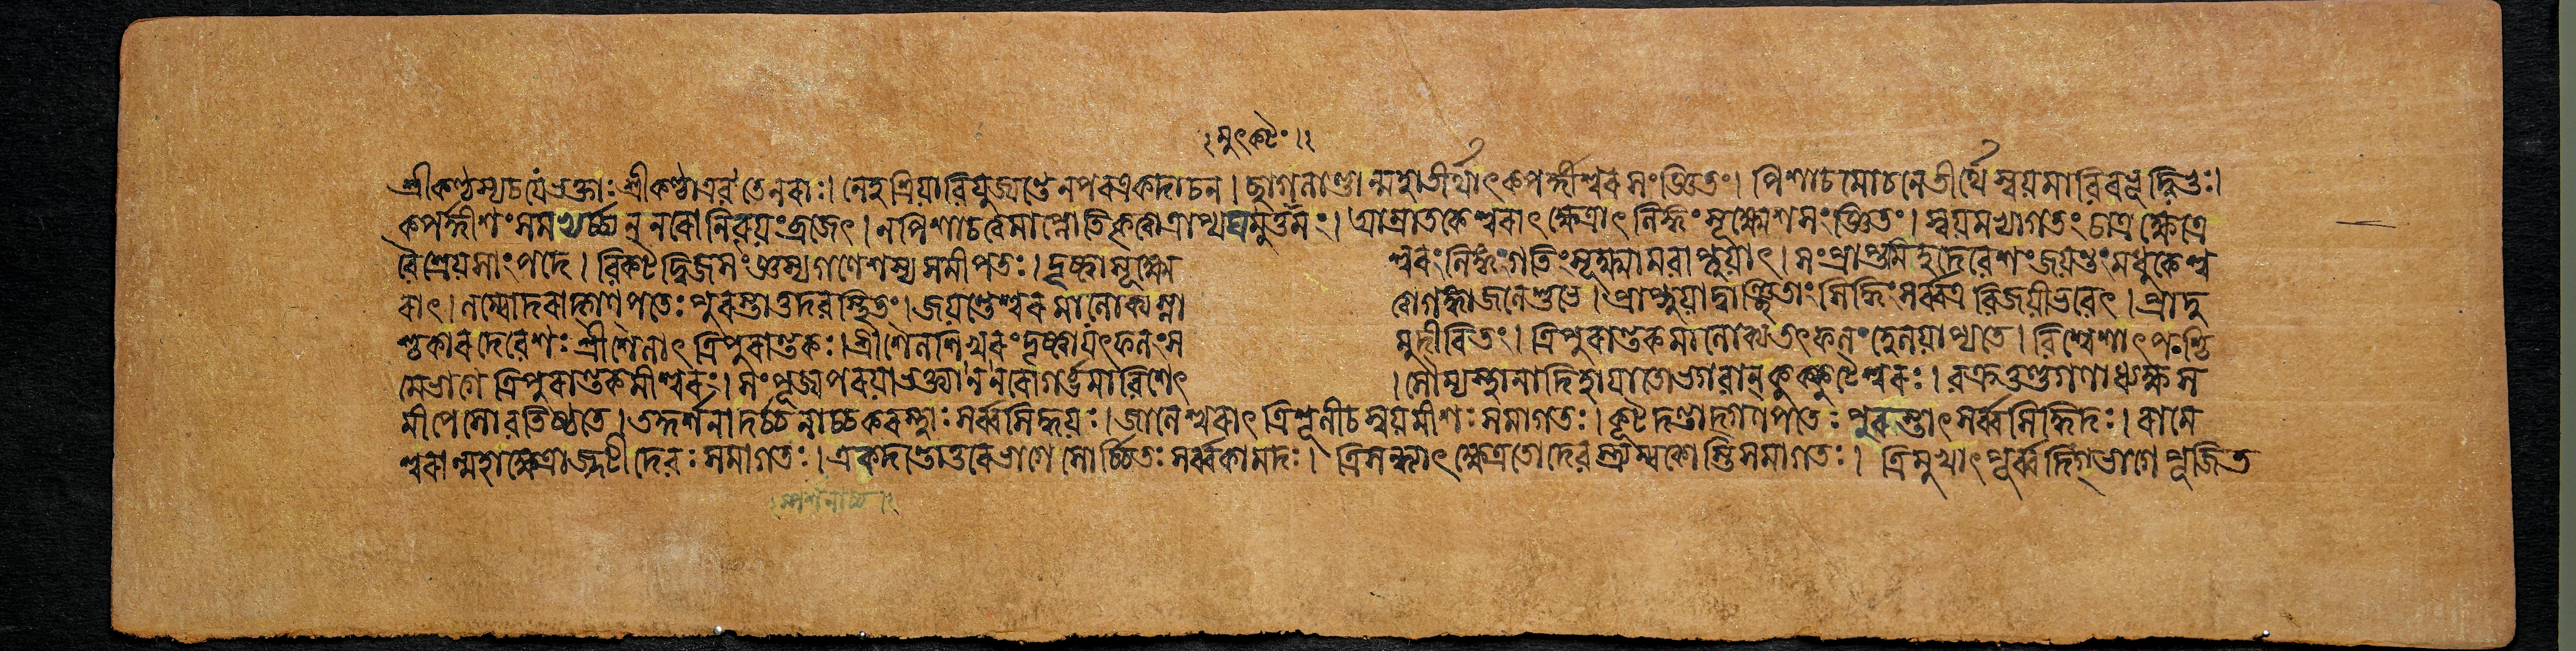 মুৎকটং।
শ্রীকণ্ঠস্যচযেভক্তাঃ শ্রীকণ্ঠাএবতেনরাঃ। নেহশ্রিয়াবিযুজ্যন্তেনপরত্রকদাচন। ছাগলাণ্ডান্মহাতীর্থাৎকপর্দ্দীশ্বরসংজ্ঞিতঃ। পিশাচমোচনেতীর্থেস্বয়মাবিরভূদ্বিভুঃ।
কপর্দ্দীশংসমভ্যর্চ্চ্যননরোনিরয়ংব্রজেৎ। নপিশাচত্বমাপ্নোতিকৃত্বাত্রাপ্যঘমুত্তমং। আম্রাতকেশ্বরাৎক্ষেত্রাৎলিঙ্গংসূক্ষ্মেশসংজ্ঞিতং। স্বয়মভ্যাগতংচাত্রক্ষেত্রে
বৈশ্রেয়সাংপদে। বিকটদ্বিজসংজ্ঞস্যগণেশস্যসমীপতঃ। দৃষ্ট্বাসূক্ষ্মে শ্বরংলিঙ্গংগতিংসূক্ষ্মামবাপ্নুয়াৎ। সংপ্রাপ্তমিহদেবেশংজয়ন্তংমধুকেশ্ব
রাৎ। লম্বোদরাদ্গণপতেঃপুরস্তাত্তদবস্থিতং। জয়ন্তেশ্বরমালোক্যস্না ত্বাগঙ্গাজলেশুভে। প্রাপ্নুয়াদ্বাঞ্ছিতাংসিদ্ধিংসর্ব্বত্রবিজয়ীভবেৎ। প্রাদু
শ্চকারদেবেশঃশ্রীশৈলাৎত্রিপুরান্তকঃ। শ্রীশৈলশিখরংদৃষ্ট্বাযৎফলংস মুদীরিতং। ত্রিপুরান্তকমালোক্যতৎফলংহেলয়াপ্যতে। বিশ্বেশাৎপশ্চি
মেভাগেত্রিপুরান্তকমীশ্বরং। সংপূজ্যপরয়াভক্ত্যাননরোগর্ভমাবিশেৎ । সৌম্যস্থানাদিহায়াতোভগবান্কুক্কুটেশ্বরঃ। বক্রতুণ্ডগণাধ্যক্ষস
মীপেসোবতিষ্ঠতে। তদ্দর্শনাদর্চ্চনাচ্চকরস্থাঃসর্ব্বসিদ্ধয়ঃ। জালেশ্বরাৎত্রিশূলীচস্বয়মীশঃসমাগতঃ। কূটদন্তাদ্গণপতেঃপুরস্তাৎসর্ব্বসিদ্ধিদঃ। রামে
শ্বরান্মহাক্ষেত্রাজ্জটীদেবঃসমাগতঃ। একদন্তোত্তরেভাগেসোর্চ্চিতঃসর্ব্বকামদঃ। ত্রিসন্ধ্যাৎক্ষেত্রতোদেবস্ত্র্যম্বকোস্তিসমাগতঃ। ত্রিমুখাৎপূর্ব্বদিগ্ভাগেপূজিত
স্পর্শনাচ্চ।